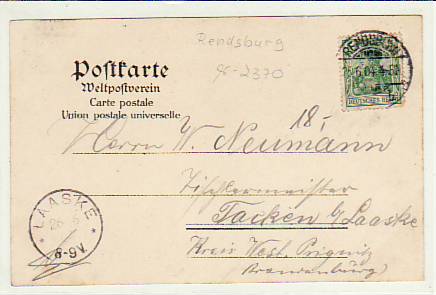 Rendsburg
98-2370
RENDSBURG
6.04
DEUTSCHES REICH
Postkarte
Weltpostverein
Carte postale
Union postale universelle
18,-
Herrn W. Neumann
Tischlermeister
Tacken b/Laaske
Kreis West Prignitz
Brandenburg)
LAASKE
26 6
8-9V